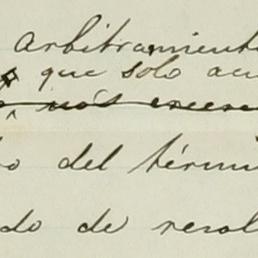 arbitramiento
que solo acu
o del térmi
do de resol